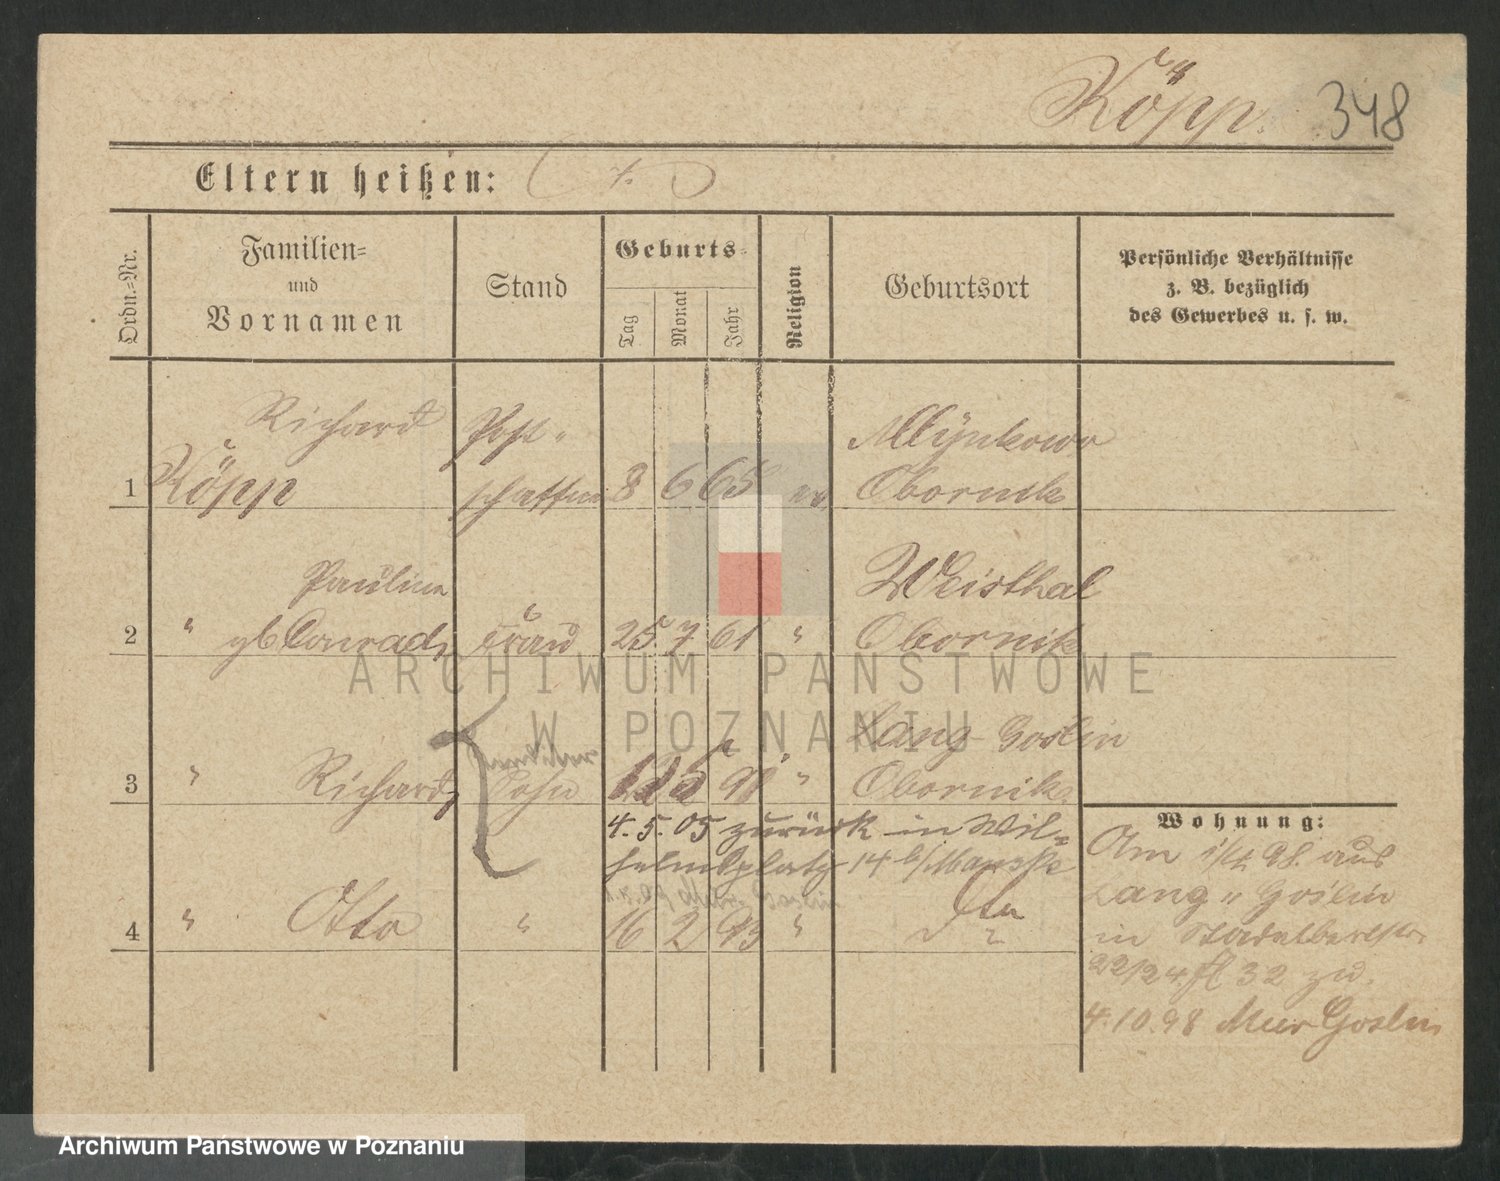 Köpp. 348
Eltern heißen: ( /. )
Ordn.-Nr.
Familien-
und
Vornamen
Stand
Geburts-
Tag
Monat
Jahr
Religion
Geburtsort
Persönliche Verhältnisse
z. B. bezüglich
des Gewerbes u. s. w.
Richard Post- Mlynkowo
1 Köpp schaffner 8 6 65 ev. Obornik
Pauline Weisthal
2 " gb Conrad, Frau 25 7 61 " Obornik
Lang Goslin
3 " Richard, Sohn 5 " Obornik
4. 5. 05 zurück in Wil-
helmsplatz 14 b/
4 " Otto " 16 2 93 "
Wohnung:
Am 1/4 98. aus
Lang " Goslin
in
22/24. 32 zu.
4. 10. 98 Mur Goslin
ARCHIWUM PAŃSTWOWE
W POZNANIU
Archiwum Państwowe w Poznaniu